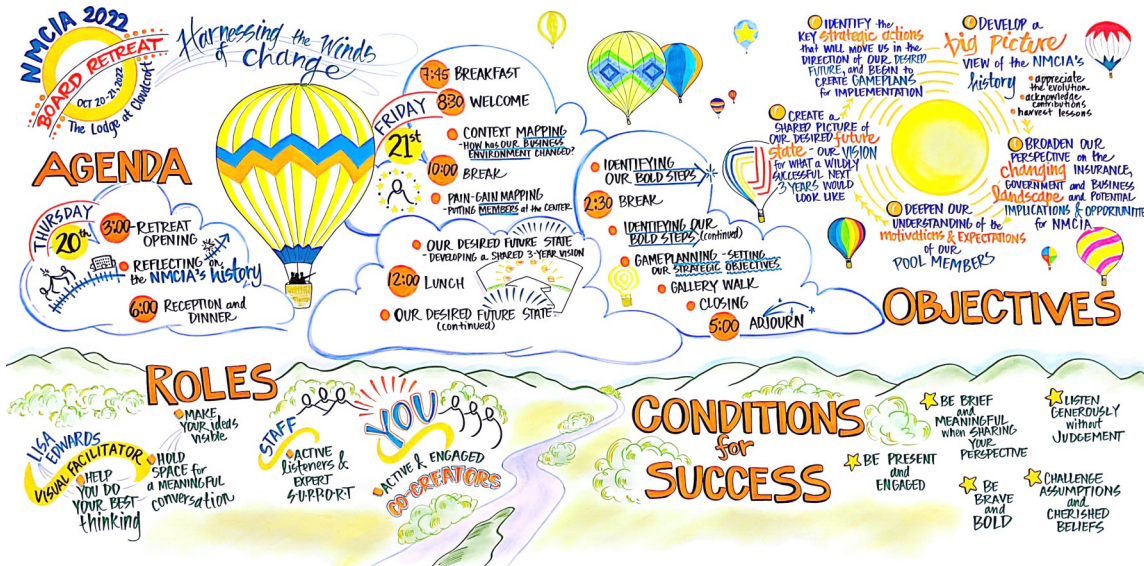 NMCIA 2022
BOARD RETREAT
OCT 20-21, 2022
The Lodge at Cloudcroft
Harnessing the Winds
of change
AGENDA
THURSDAY
20th
3:00-RETREAT
OPENING
REFLECTING on
the NMCIA's history
6:00 RECEPTION and
DINNER
FRIDAY
21st
7:45 BREAKFAST
8:30 WELCOME
CONTEXT MAPPING
-HOW has OUR BUSINESS
ENVIRONMENT CHANGED?
10:00 BREAK
PAIN-GAIN MAPPING
-PUTING MEMBERS at the CENTER
OUR DESIRED FUTURE STATE
- DEVELOPING a SHARED 3-YEAR VISION
12:00 LUNCH
OUR DESIRED FUTURE STATE
(continued)
IDENTIFYING
OUR BOLD STEPS
2:30 BREAK
IDENTIFYING OUR
BOLD STEPS (continued)
GAMEPLANNING - SETTING
OUR STRATEGIC OBJECTIVES
GALLERY WALK
CLOSING
5:00 ADJOURN
IDENTIFY the
KEY strategic actions
that WILL MOVE US in the
DIRECTION OF OUR DESIRED
FUTURE, and BEGIN to
CREATE GAMEPLANS
for IMPLEMENTATION
DEVELOP a
big picture
VIEW of the NMCIA's
history
• appreciate
the evolution
• acknowledge
contributions
• harvest lessons
CREATE a
SHARED PICTURE of
OUR DESIRED future
state - OUR VISION
for WHAT A WILDLY
SUCCESSFUL NEXT
3 YEARS WOULD
LOOK LIKE
BROADEN OUR
PERSPECTIVE on the
changing INSURANCE,
GOVERNMENT and BUSINESS
landscape and POTENTIAL
IMPLICATIONS & OPPORTUNITIE
for NMCIA
DEEPEN OUR
UNDERSTANDING of the
motivations & EXPECTATIONS
of OUR
POOL MEMBERS
OBJECTIVES
ROLES
LISA
EDWARDS
VISUAL FACILITATOR
HELP
YOU DO
YOUR BEST
thinking
MAKE
YOUR ideas
visible
HOLD
SPACE for
a MEANINGFUL
conversation
STAFF
ACTIVE
listeners &
EXPERT
SUPPORT
YOU
ACTIVE & ENGAGED
CO-CREATORS
CONDITIONS
for
SUCCESS
BE BRIEF
and
MEANINGFUL
when SHARING
YOUR
PERSPECTIVE
LISTEN
GENEROUSLY
without
JUDGEMENT
BE PRESENT
and
ENGAGED
BE
BRAVE
and
BOLD
CHALLENGE
ASSUMPTIONS
and
CHERISHED
BELIEFS